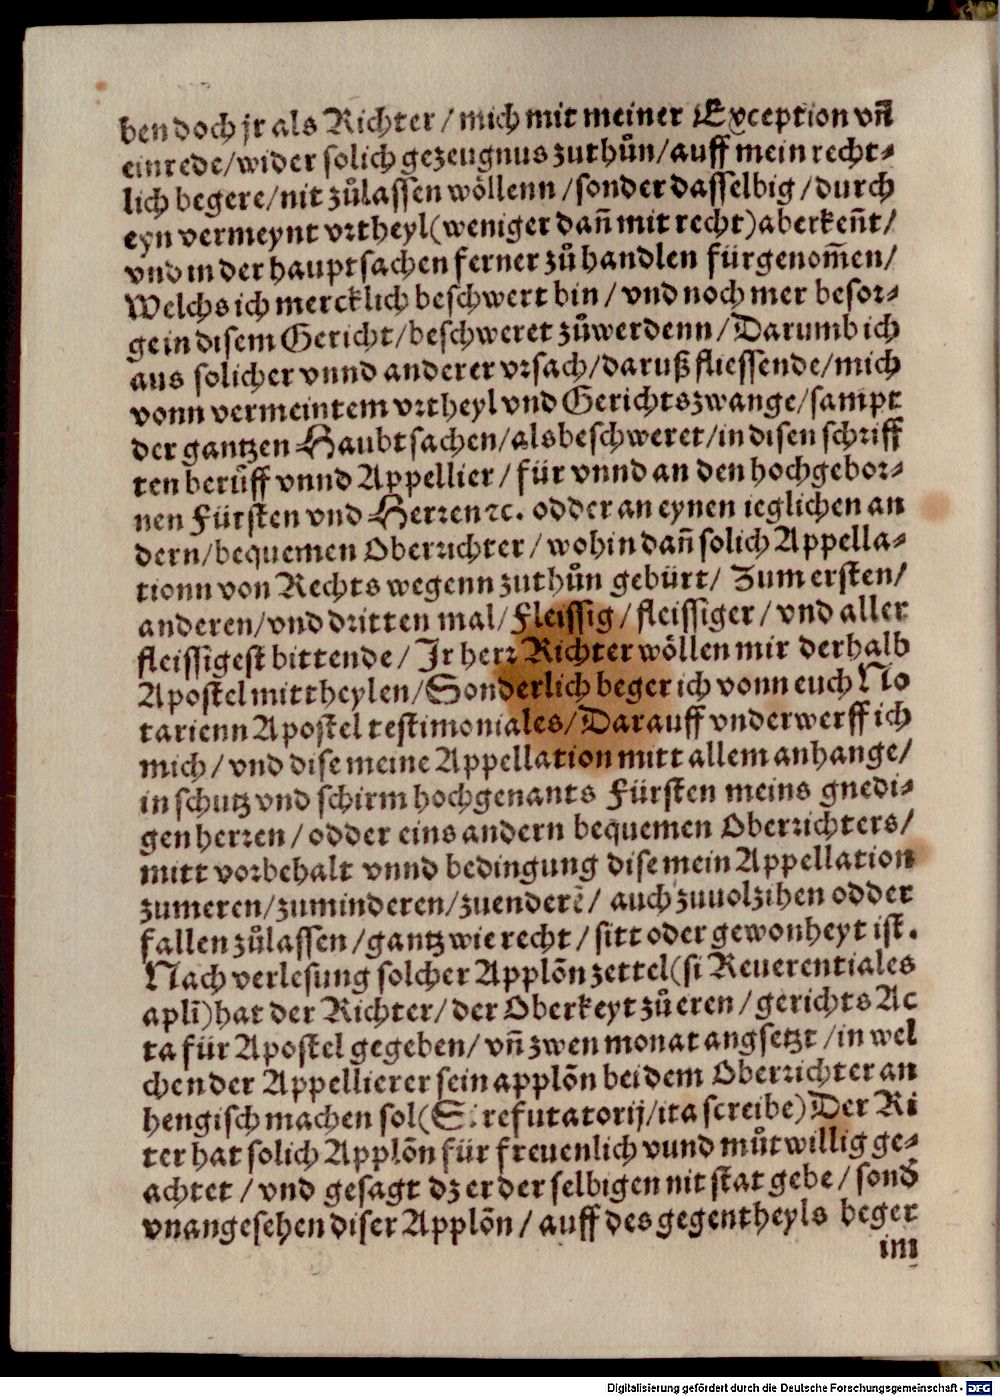 ben doch jr als Richter / mich mit meiner Exception vñ
einrede / wider solich gezeugnus zuthůn / auff mein recht⸗
lich begere / nit zůlassen wöllenn / sonder dasselbig / durch
eyn vermeynt vrtheyl (weniger dañ mit recht) aberkeñt /
vnd in der hauptsachen ferner zů handlen fürgenom̃en /
Welchs ich mercklich beschwert bin / vnd noch mer besor⸗
ge in disem Gericht / beschweret zůwerdenn / Darumb ich
aus solicher vnnd anderer vrsach / daruß fliessende / mich
vonn vermeintem vrtheyl vnd Gerichtszwange / sampt
der gantzen Haubtsachen / als beschweret / in disen schriff
ten berůff vnnd Appellier / für vnnd an den hochgebor⸗
nen Fürsten vnd Herren ꝛc. odder an eynen ieglichen an
dern / bequemen Oberrichter / wohin dañ solich Appella⸗
tionn von Rechts wegenn zuthůn gebürt / Zum ersten /
anderen / vnd dritten mal / Fleissig / fleissiger / vnd aller
fleissigest bittende / Jr herr Richter wöllen mir derhalb
Apostel mittheylen / Sonderlich beger ich vonn euch No
tarienn Apostel testimoniales / Darauff vnderwerff ich
mich / vnd dise meine Appellation mitt allem anhange /
in schutz vnd schirm hochgenants Fürsten meins gnedi⸗
gen herren / odder eins andern bequemen Oberrichters /
mitt vorbehalt vnnd bedingung dise mein Appellation
zumeren / zuminderen / zuenderẽ / auch zuuolzihen odder
fallen zůlassen / gantz wie recht / sitt oder gewonheyt ist.
Nach verlesung solcher Applõn zettel (si Reuerentiales
apli) hat der Richter / der Oberkeyt zů eren / gerichts Ac
ta für Apostel gegeben / vñ zwen monat angsetzt / in wel
chen der Appellierer sein applõn bei dem Oberrichter an
hengisch machen sol (Si refutatorij / ita scribe) Der Ri
ter hat solich Applõn für freuenlich vund můtwillig ge⸗
achtet / vnd gesagt dz er der selbigen nit stat gebe / sond̕
vnangesehen diser Applõn / auff des gegentheyls beger
im
Digitalisierung gefördert durch die Deutsche Forschungsgemeinschaft - DFG